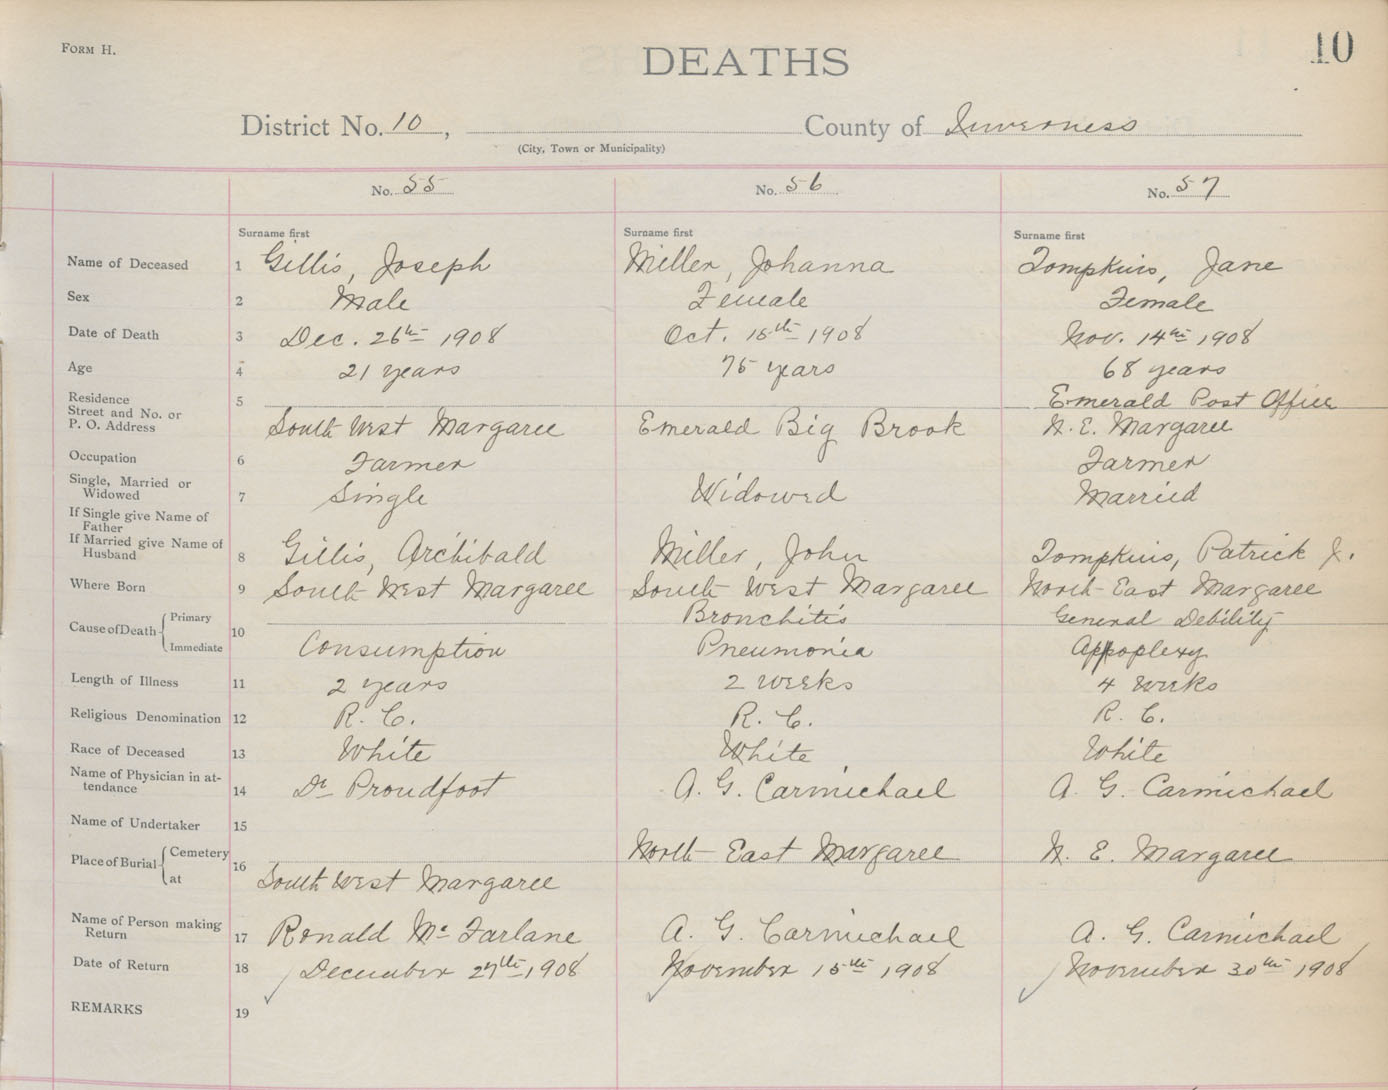 FORM H.
DEATHS
10
District No. 10, County of Inverness
(City, Town or Municipality)
No. 55 No. 56 No. 57
Surname first Surname first Surname first
Name of Deceased 1 Gillis, Joseph Miller, Johanna Tompkins, Jane
Sex 2 Male Female Female
Date of Death 3 Dec. 26th 1908 Oct. 15th 1908 Nov. 14th 1908
Age 4 21 years 75 years 68 years
Residence 5 Emerald Post Office
Street and No. or
P. O. Address South West Margaree Emerald Big Brook N. E. Margaree
Occupation 6 Farmer Farmer
Single, Married or
Widowed 7 Single Widowed Married
If Single give Name of
Father
If Married give Name of
Husband 8 Gillis, Archibald Miller, John Tompkins, Patrick J.
Where Born 9 South West Margaree South West Margaree North East Margaree
Cause of Death Primary 10 Bronchitis General Debility
Immediate Consumption Pneumonia Appoplexy
Length of Illness 11 2 years 2 weeks 4 weeks
Religious Denomination 12 R. C. R. C. R. C.
Race of Deceased 13 White White White
Name of Physician in at-
tendance 14 Dr Proudfoot A. G. Carmichael A. G. Carmichael
Name of Undertaker 15
Place of Burial Cemetery 16 North East Margaree N. E. Margaree
at South West Margaree
Name of Person making
Return 17 Ronald Mc Farlane A. G. Carmichael A. G. Carmichael
Date of Return 18 December 27th 1908 November 15th 1908 November 30th 1908
REMARKS 19